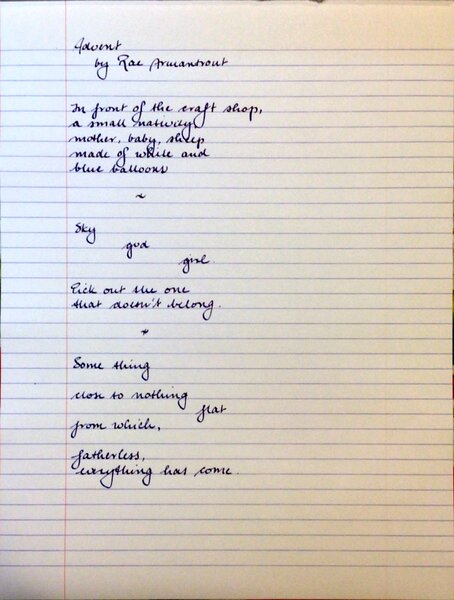 Advent
by Rae Armantrout
In front of the craft shop,
a small nativity
mother, baby, sheep
made of white and
blue balloons
~
Sky
god
girl
Pick out the one
that doesn't belong.
*
Some thing
close to nothing
flat
from which,
fatherless,
everything has come.